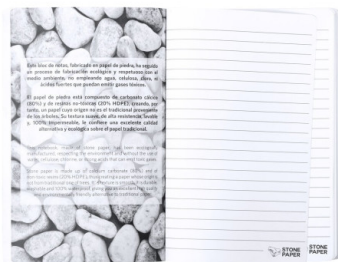 Este bloc de notas, fabricado en papel de piedra, ha seguido
un proceso de fabricación ecológico y respetuoso con el
medio ambiente. No empleando agua, celulosa, cloro, ni
ácidos fuertes que puedan emitir gases tóxicos.
El papel de piedra está compuesto de carbonato cálcico
(80%) y de resinas no-tóxicas (20% HDPE), creando, por
tanto, un papel cuyo origen no es el tradicional proveniente
de los árboles. Su textura suave, de alta resistencia,
y 100% impermeable, le confiere una excelente calidad
alternativa y ecológica sobre el papel tradicional.
This notebook, stone paper has been ecologically
manufactured, respecting the environment and without the use of
water, cellulose chlorine or strong acids that can emit toxic gases.
Stone paper is made up of calcium carbonate (80%) and
non-toxic resins (20% HDPE), thus creating a paper whose origin is
not from traditional
and 100% waterproof
STONE
PAPER
STONE
PAPER